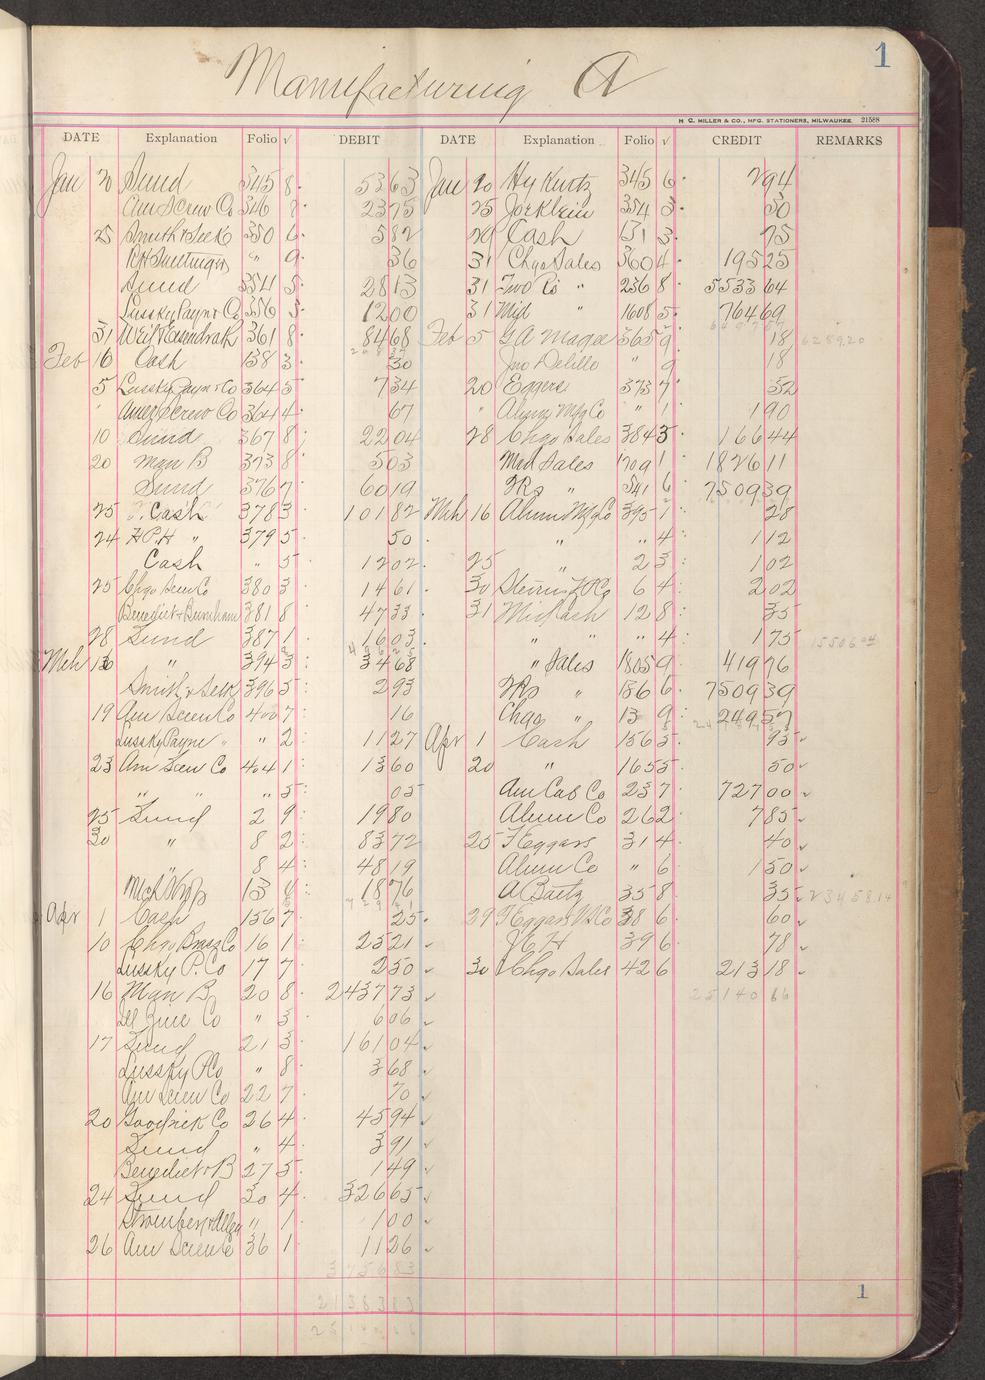 1
Manufacturing A
H. C. MILLER & CO., MFG. STATIONERS, MILWAUKEE. 21588
DATE Explanation Folio √ DEBIT DATE Explanation Folio √ CREDIT REMARKS
Jan 20 Sund 345 8 53 63 Jan 20 Hy Kurtz 345 6 2 94
Am Screw Co 346 8 23 75 25 Joe Klein 354 3 50
25 Smith & Seek 350 6 5 82 29 Cash 131 3 75
" 9 36 31 Chgo Sales 360 4 195 25
Sund 354 5 28 13 31 Two Rs " 236 8 5533 64
Lussky Payne & Co 356 3 12 00 31 Mid " 1608 5 764 69
31 361 8 84 68 Feb 5 G A Magee 365 9 18 6289.20
Feb 16 Cash 138 3 30 Jno Delillo " 9 18
5 Lussky Payne & Co 364 5 7 34 20 Eggers 373 7 52
" Amer Screw Co 364 4 67 " Alumn Mfg Co " 1 1 90
10 Sund 367 8 22 04 28 Chgo Sales 384 3 166 44
20 Man B 373 8 5 03 Mid Sales 1709 1 1826 11
Sund 376 7 60 19 2Rs " 541 6 7509 39
25 Cash 378 3 101 82 Mch 16 Alumn Mfg Co 395 1 28
24 H.P.H " 379 5 50 " " 4 1 12
Cash " 5 12 02 25 " 2 3 1 02
25 Chgo Screw Co 380 3 14 61 30 6 4 2 02
Benedict & Burnham 381 8 47 33 31 Mid Cash 12 8 35
28 Sund 387 1 16 03 " " " 4 1 75 15506.04
Mch 16 " 394 3 34 68 " Sales 1805 9 419 76
Smith & Seek 396 5 2 93 2Rs " 186 6 7509 39
19 Am Screw Co 400 7 16 Chgo " 13 9 249 57
Lussky Payne " " 2 11 27 Apr 1 Cash 156 3 95
23 Am Screw Co 404 1 13 60 20 " 165 5 50
" " " 5 05 Am Cab Co 23 7 727 00
25 Sund 2 9 19 80 Alumn Co 26 2 7 85
30 " 8 2 83 72 25 F Eggars 31 4 40
" 8 4 48 19 Alumn Co " 6 1 50
13 18 76 A Baetz 35 8 35 23458.14
Apr 1 Cash 156 7 25 29 F Eggars & Co 38 6 60
10 Chgo Brass Co 16 1 25 21 J C H 39 6 78
Lussky P. Co 17 7 2 50 30 Chgo Sales 42 6 213 18
16 Man B 20 8 2437 73 25140 66
Ill Zinc Co " 3 6 06
17 Sund 21 3 161 04
Lussky P Co " 8 3 68
Am Screw Co 22 7 70
20 Goodrick Co 26 4 45 94
Sund " 4 3 91
Benedict & B 27 5 1 49
24 Sund 30 4 326 65
" 1 1 00
26 Am Screw Co 36 1 11 26
3756 83
21383 83
25140 66
1